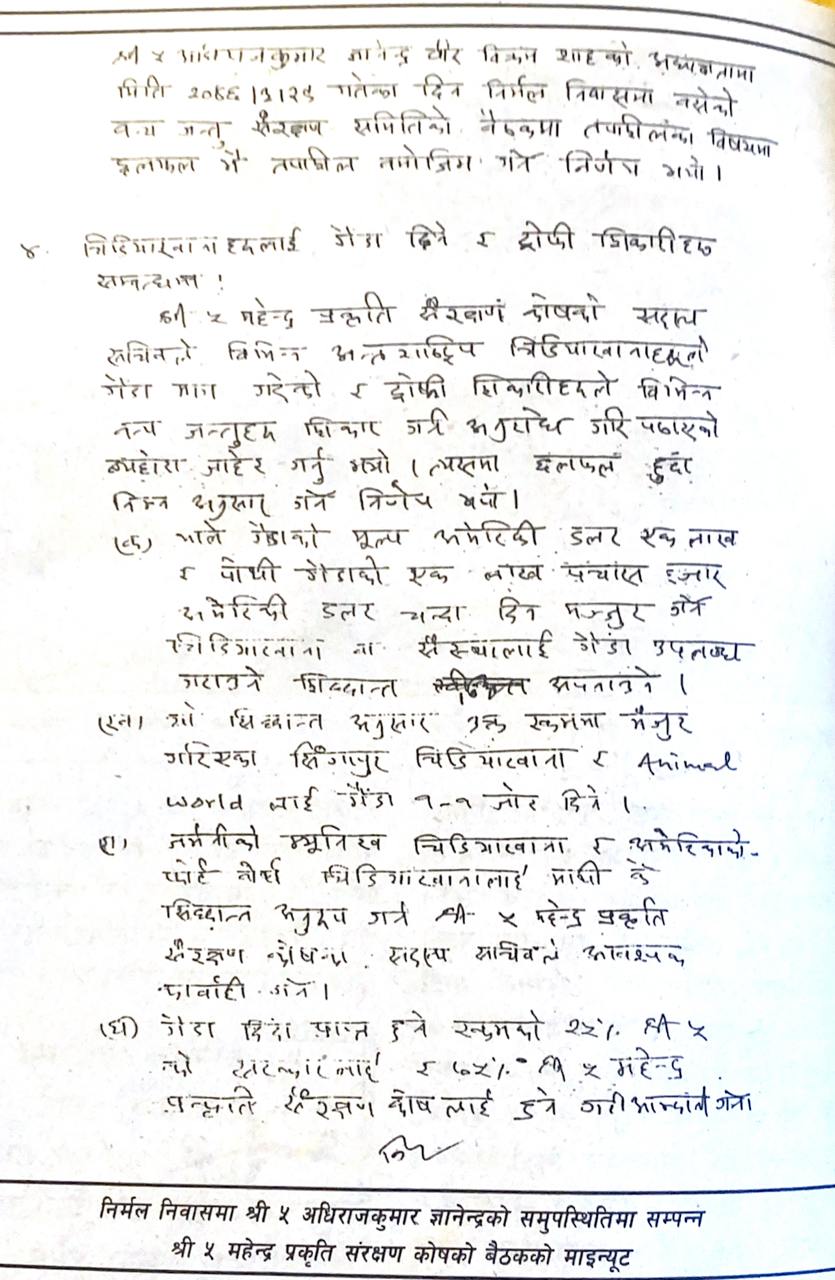 श्री ५ अधिराजकुमार ज्ञानेन्द्र वीर विक्रम शाहको अध्यक्षतामा
मिति २०४६।१।२९ गतेका दिन निर्मल निवासमा बसेको
वन्य जन्तु संरक्षण समितिको बैठकमा तपशीलका विषयमा
छलफल भै तपशील बमोजिम गर्ने निर्णय भयो ।
४. चिडियाखानाहरुलाई गैंडा दिने र ट्रोफी शिकारीहरु
सम्बन्धमा !
श्री ५ महेन्द्र प्रकृति संरक्षण कोषको सदस्य
सचिवले विभिन्न अन्तर्राष्ट्रिय चिडियाखानाहरुले
गैंडा माग गरेको र ट्रोफी शिकारीहरुले विभिन्न
वन्य जन्तुहरु शिकार गर्न अनुरोध गरि पठाएको
ब्यहोरा जाहेर गर्नु भयो । त्यसमा छलफल हुँदा
निम्न अनुसार गर्ने निर्णय भयो ।
(क) भाले गैंडाको मूल्य अमेरिकी डलर एक लाख
र पोथी गैंडाको एक लाख पचास हजार
अमेरिकी डलर चन्दा दिन मन्जुर गर्ने
चिडियाखाना वा संस्थालाई गैंडा उपलब्ध
गराउने सिद्धान्त अपनाउने ।
(ख) सो सिद्धान्त अनुसार उक्त रकममा मंजुर
गरिएका सिंगापुर चिडियाखाना र Animal
World लाई गैंडा १-१ जोर दिने ।
ग) जर्मनीको म्यूनिख चिडियाखाना र अमेरिकाको
फोर्ट वोर्थ चिडियाखानालाई माथी कै
सिद्धान्त अनुरुप गर्न श्री ५ महेन्द्र प्रकृति
संरक्षण कोषका सदस्य सचिवले आवश्यक
कार्वाही गर्ने ।
(घ) गैंडा दिंदा प्राप्त हुने रकमको २५% श्री ५
को सरकारलाई र ७५% श्री ५ महेन्द्र
प्रकृति संरक्षण कोष लाई हुने गरी आम्दानी गर्ने।
निर्मल निवासमा श्री ५ अधिराजकुमार ज्ञानेन्द्रको समुपस्थितिमा सम्पन्न
श्री ५ महेन्द्र प्रकृति संरक्षण कोषको बैठकको माइन्यूट